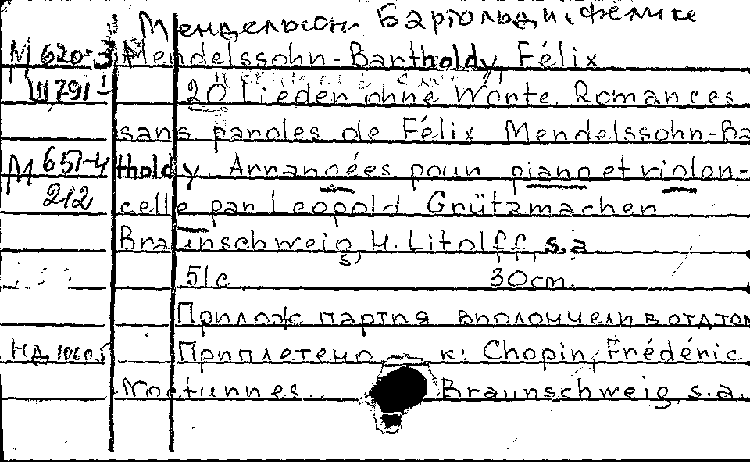 Мендельсон-Бартольди, Феликс
М 620-3 Mendelssohn-Bartholdy, Félix
Ш 791 20 Lieder ohne Worte. Romances
sans paroles de Félix Mendelssohn-Ba
М 651-4 tholdy. Arrangées pour piano et violon-
212 celle par Leopold Grützmacher
Braunschweig, H. Litolff, s.a.
51 c. 30 cm.
Прилож. партия виолончели в отд. том
НД Приплетено к: Chopin, Frédéric
Nocturnes. Braunschweig, s.a.